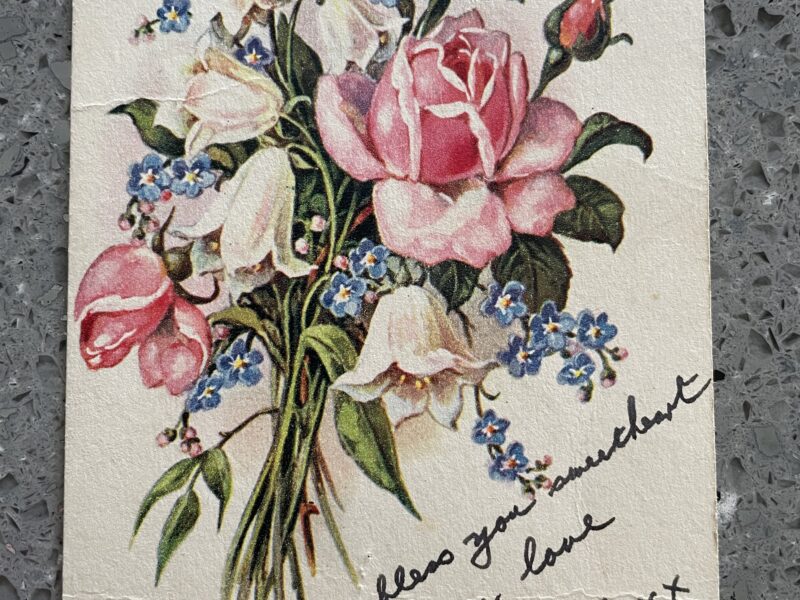 bless you sweetheart
love
x